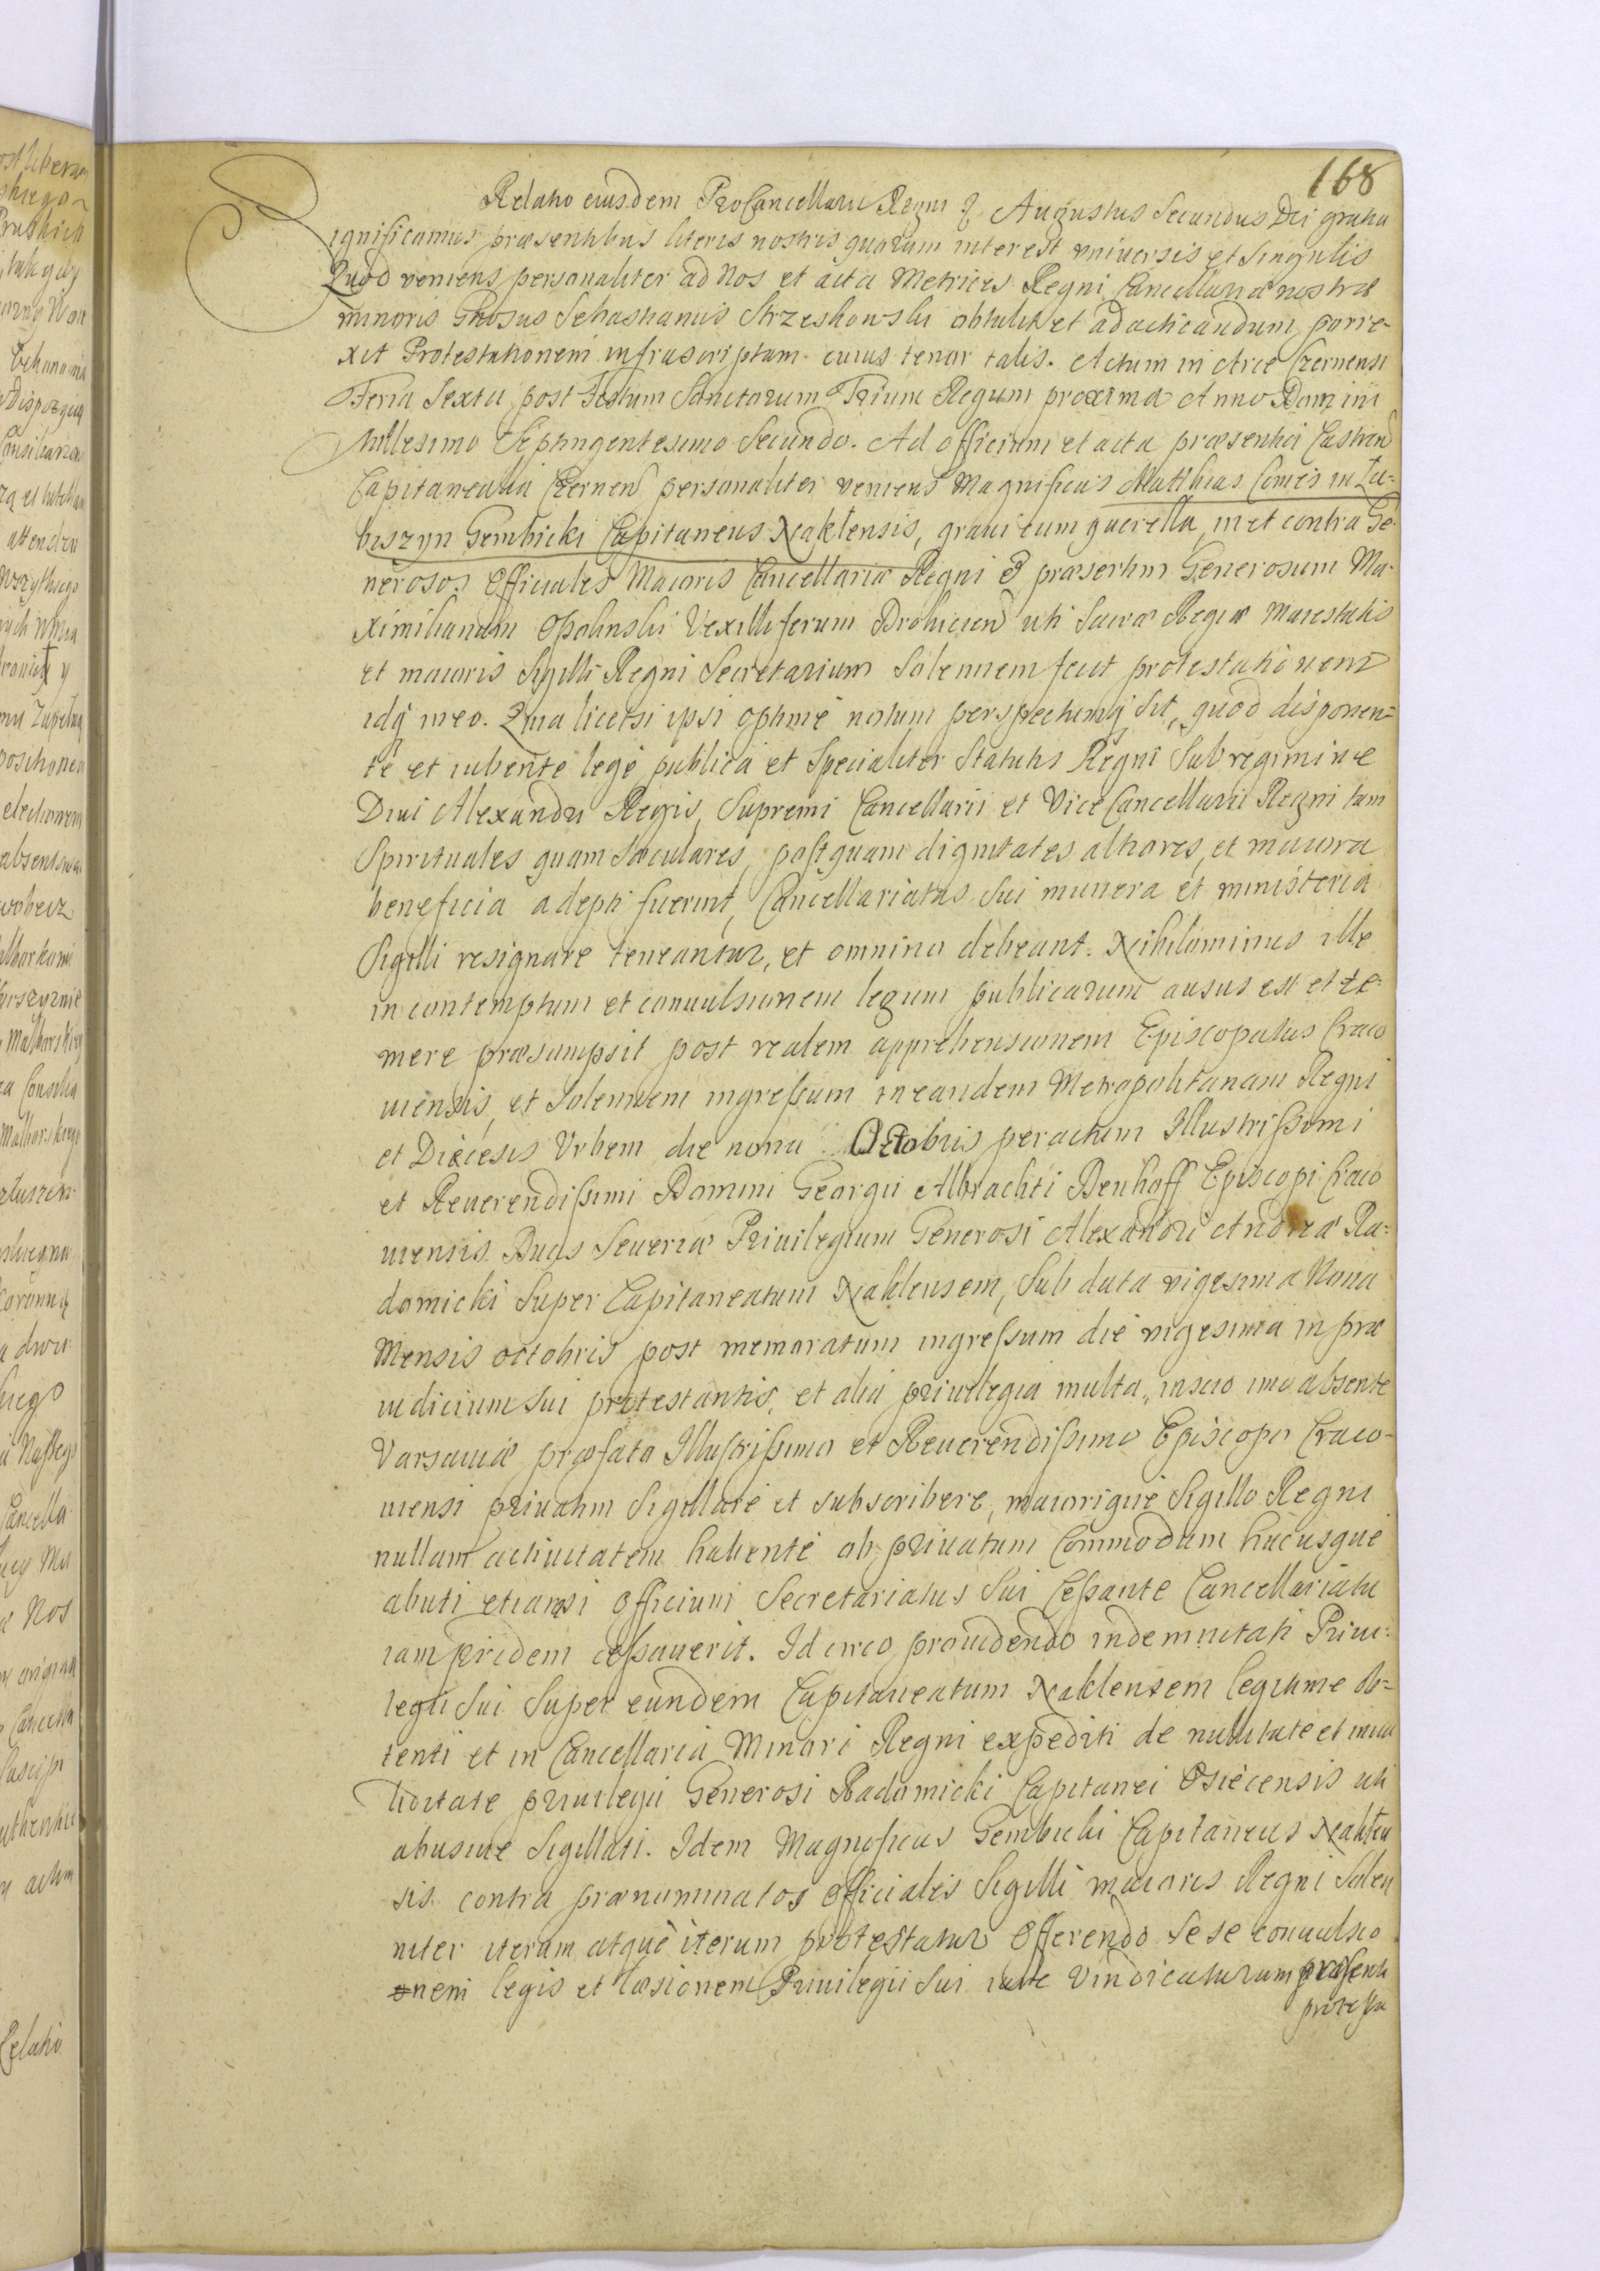 168
Relatio eiusdem ProCancellarii Regni & Augustus Secundus Dei gratia
Significamus præsentibus literis nostris quorum interest universis et Singulis
Quod veniens personaliter ad Nos et acta Metrices Regni Cancellariæ nostræ
minoris Gnosus Sebastianus Strzeszkowski obtulit et ad acticandum porre-
xit Protestationem infrascriptam cuius tenor talis. Actum in Arce Czernensi
Feria Sexta post Festum Sanctorum Trium Regum proxima Anno Domini
Millesimo Septingentesimo Secundo. Ad officium et acta præsentia Castren
Capitanealia Czernen personaliter veniens Magnificus Matthias Comes in Łа-
biszyn Gembicki Capitaneus Naklensis, gravi cum querella, in et contra Ge-
nerosos Officiales Maioris Cancellariæ Regni & præsertim Generosum Ma-
ximilianum Opalinski Vexilliferum Drohicien uti Sacræ Regiæ Maiestatis
et maioris Sigilli Regni Secretarium Solennem fecit protestationem
idq̃ in eo. Quia licet si ipsi optime notum perspectumq̃ sit, quod disponen-
te et iubente lege publica et Specialiter Statutis Regni Sub regimine
Divi Alexandri Regis, Supremi Cancellarii et Vice Cancellarii Regni tam
Spirituales quam Sæculares, postquam dignitates altiores, et maiora
beneficia adepti fuerint, Cancellariatus Sui munera et ministeria
Sigilli resignare teneantur, et omnino debeant. Nihilominus ille
in contemptum et convulsionem legum publicarum ausus est et te-
mere præsumpsit post realem apprehensionem Episcopatus Craco
viensis, et Solennem ingressum in eandem Metropolitanam Regni
et Diæcesis Urbem die nona Octobris peractum Illustrissimi
et Reverendissimi Domini Georgii Albrachti Denhoff Episcopi Craco
viensis Ducis Severiæ Privilegium Generosi Alexandri Andreæ Ra-
domicki Super Capitaneatum Naklensem, Sub data vigesima Nona
Mensis octobris post memoratum ingressum die vigesima in præ
iudicium Sui protestantis, et alia privilegia multa, inscio imo absente
Varsaviâ præfato Illustrissimo et Reverendissimo Episcopo Craco-
viensi privatim Sigillare et subscribere, maiorique Sigillo Regni
nullam activitatem habente ob privatum Commodum hucusque
abuti etiamsi Officium Secretariatus Sui Cessante Cancellariatu
iam pridem cessaverit. Id circo providendo indemnitati Privi-
legii Sui Super eundem Capitaneatum Naklensem legitime ob-
tenti et in Cancellaria Minori Regni expediti de nullitate et inva
liditate privilegii Generosi Radomicki Capitanei Osiecensis uti
abusive Sigillati. Idem Magnificus Gembicki Capitaneus Naklen
sis contra prænominatos Officiales Sigilli maioris Regni Solen
niter iterum atque iterum protestatur Offerendo Se se convulsio
nem legis et læsionem Privilegii Sui iure Vindicaturum præsenti
protesta